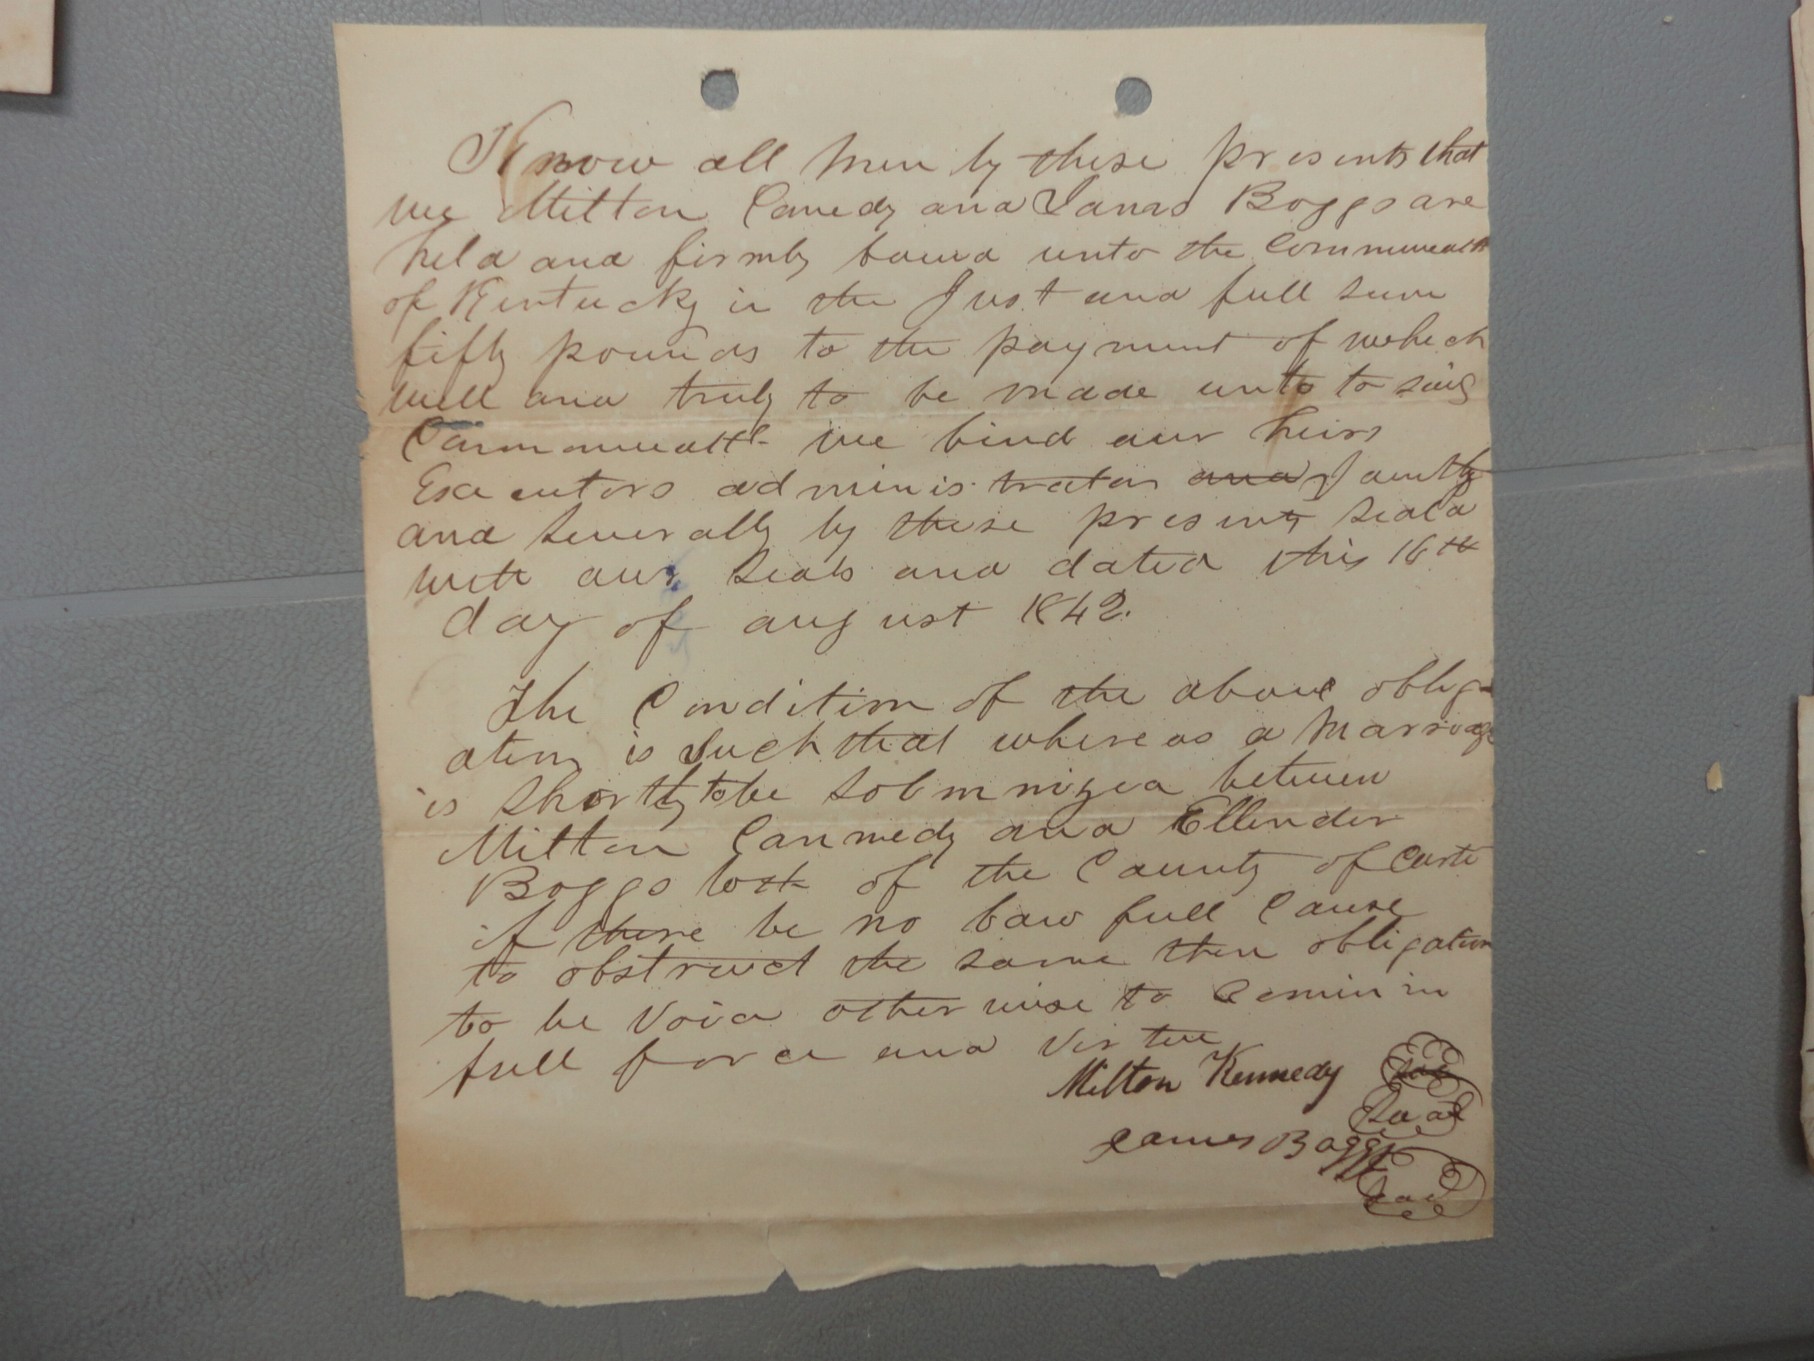 Know all men by these presents that
we Milton Canedy and James Boggs are
held and firmly bound unto the Commonwealth
of Kentucky in the Just and full sum
fifty pounds to the payment of which
well and truly to be made unto to said
Commonwealth we bind our heirs
Executors administrators and Jointly
and severally by these presents seald
with our seals and dated this 16th
day of august 1842.
The Condition of the above oblig
ation is Such that whereas a Marriage
is Shortly to be solmnized between
Milton Cannedy and Ellender
Boggs both of the County of Carte
if there be no lawfull Cause
to obstruct the same then obligation
to be void otherwise to remin in
full force and virtue
Milton Kennedy Seal
Seal
James Boggs
Seal